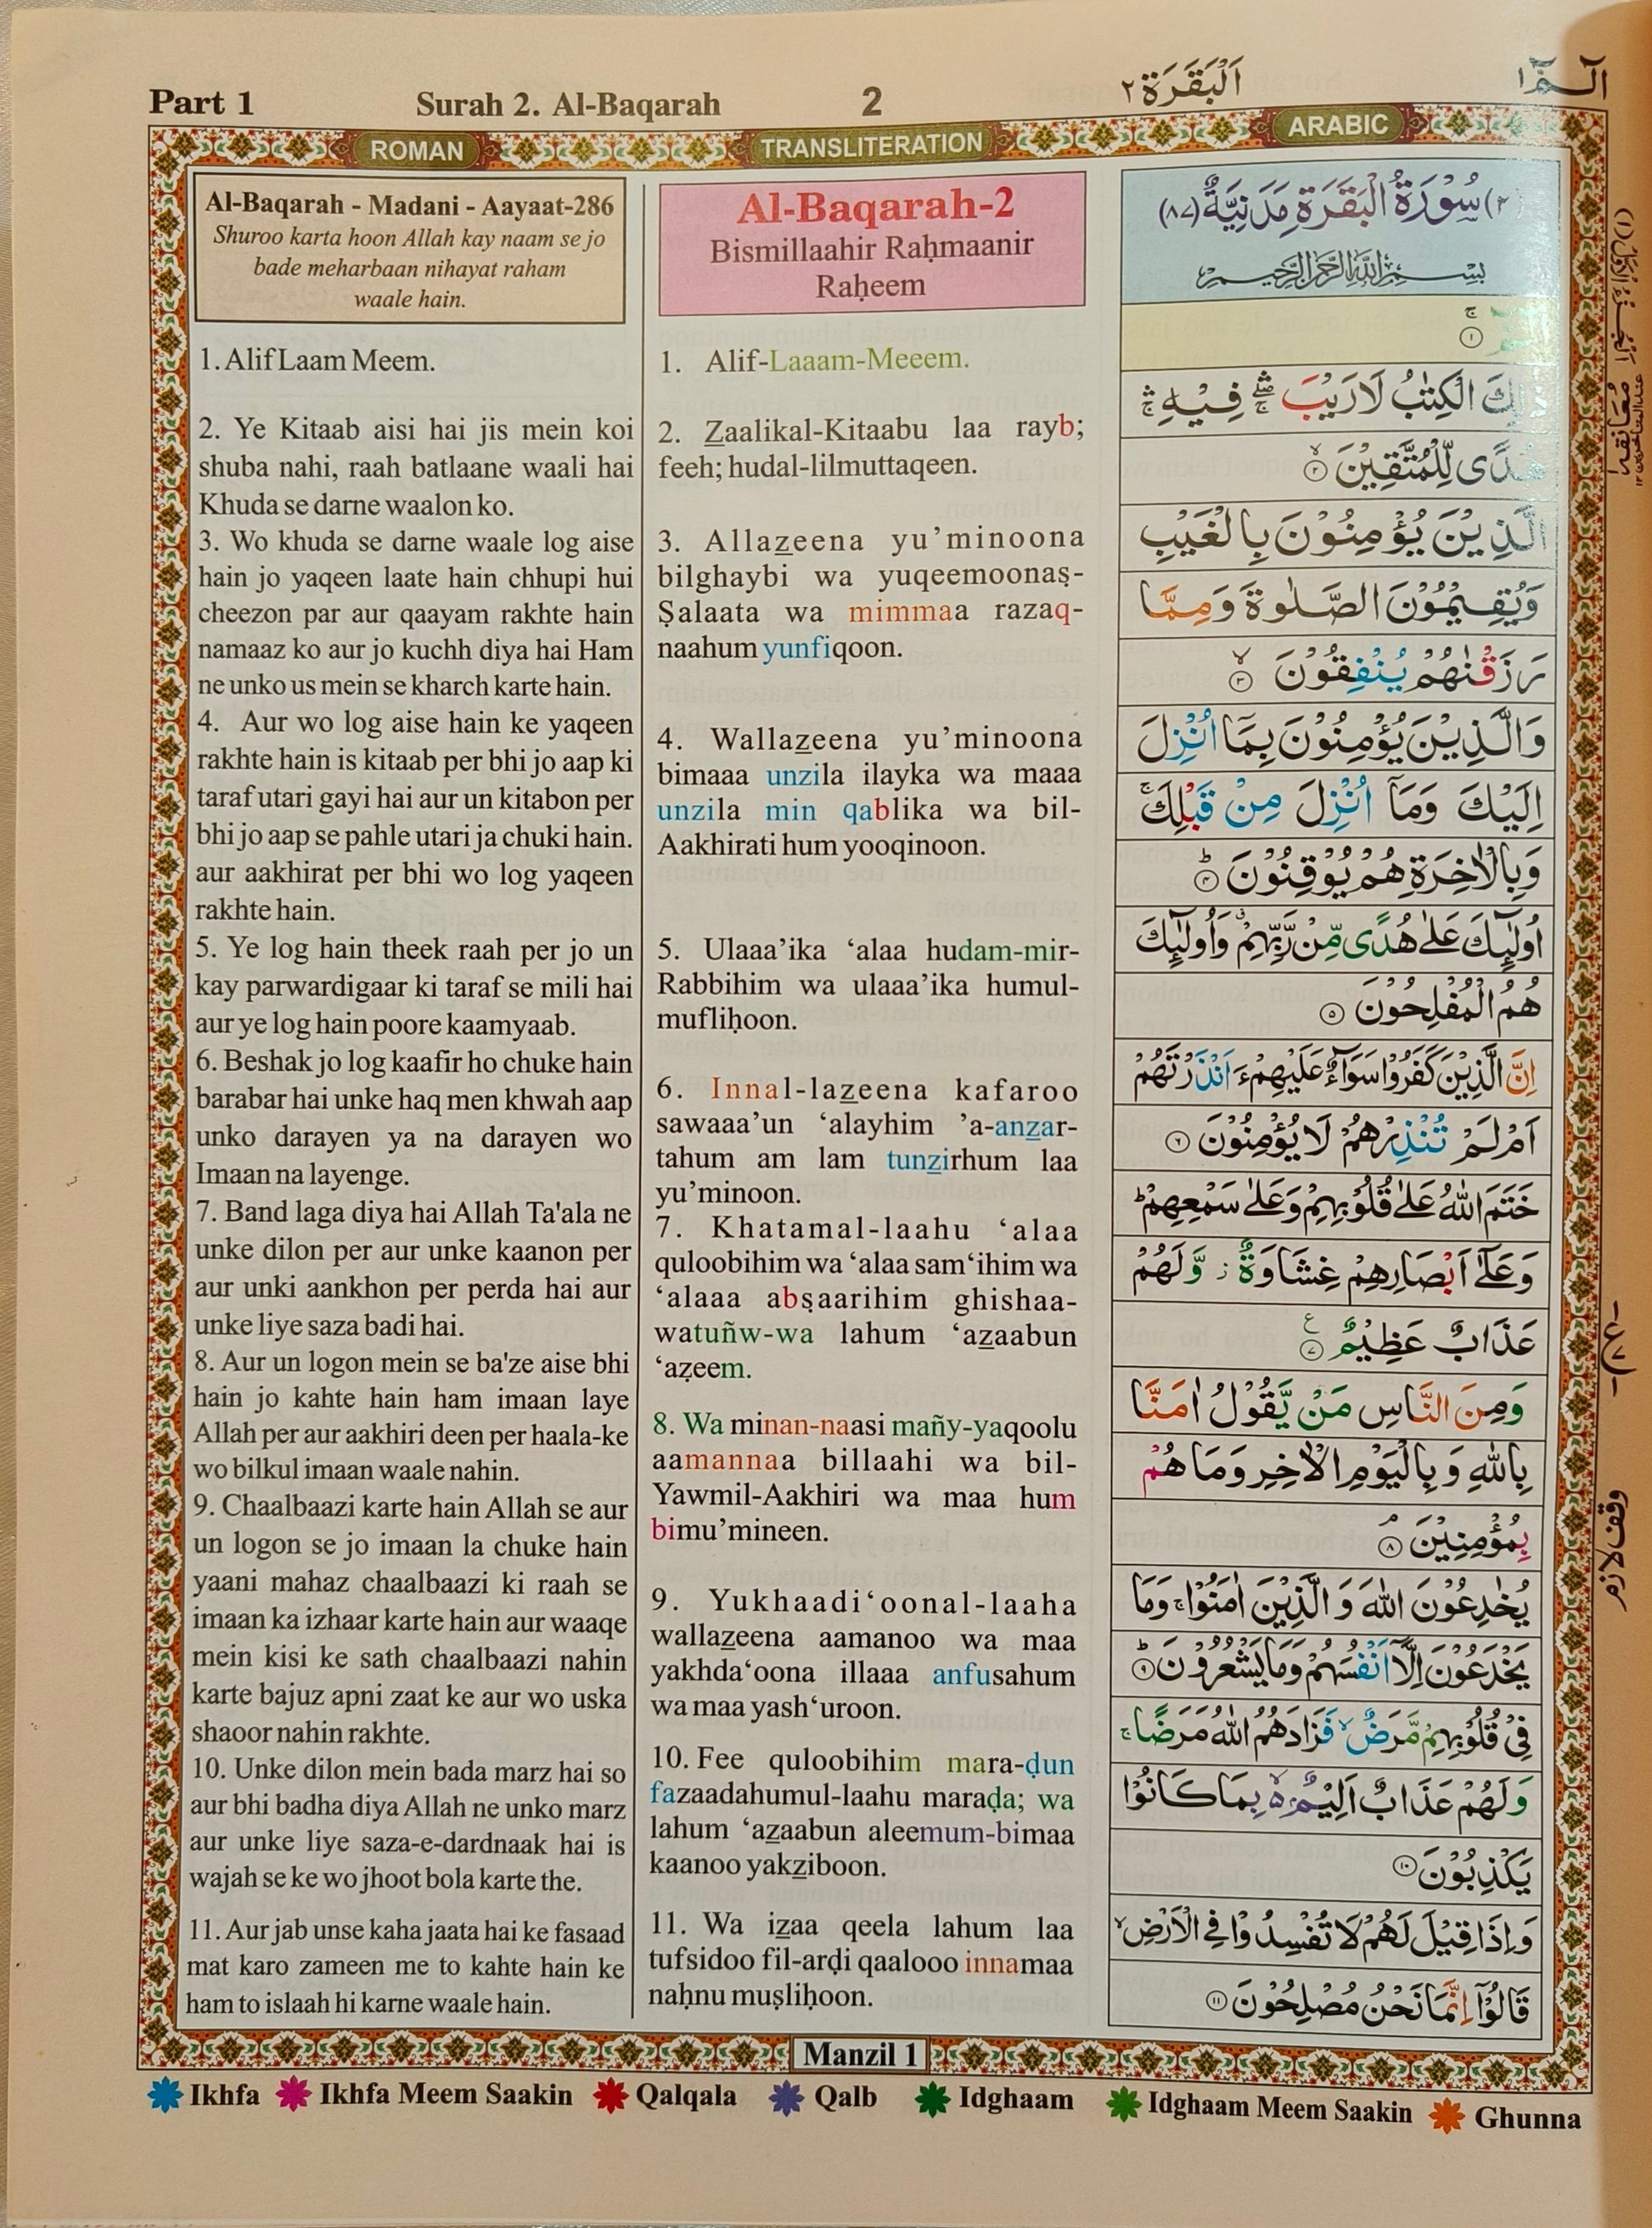 Part 1
Surah 2. Al-Baqarah
2
اَلْبَقَرَة ٢
الٓمّٓ ١
ROMAN
TRANSLITERATION
ARABIC
Al-Baqarah - Madani - Aayaat-286
Shuroo karta hoon Allah kay naam se jo
bade meharbaan nihayat raham
waale hain.
1. Alif Laam Meem.
2. Ye Kitaab aisi hai jis mein koi
shuba nahi, raah batlaane waali hai
Khuda se darne waalon ko.
3. Wo khuda se darne waale log aise
hain jo yaqeen laate hain chhupi hui
cheezon par aur qaayam rakhte hain
namaaz ko aur jo kuchh diya hai Ham
ne unko us mein se kharch karte hain.
4. Aur wo log aise hain ke yaqeen
rakhte hain is kitaab per bhi jo aap ki
taraf utari gayi hai aur un kitabon per
bhi jo aap se pahle utari ja chuki hain.
aur aakhirat per bhi wo log yaqeen
rakhte hain.
5. Ye log hain theek raah per jo un
kay parwardigaar ki taraf se mili hai
aur ye log hain poore kaamyaab.
6. Beshak jo log kaafir ho chuke hain
barabar hai unke haq men khwah aap
unko darayen ya na darayen wo
Imaan na layenge.
7. Band laga diya hai Allah Ta'ala ne
unke dilon per aur unke kaanon per
aur unki aankhon per perda hai aur
unke liye saza badi hai.
8. Aur un logon mein se ba'ze aise bhi
hain jo kahte hain ham imaan laye
Allah per aur aakhiri deen per haala-ke
wo bilkul imaan waale nahin.
9. Chaalbaazi karte hain Allah se aur
un logon se jo imaan la chuke hain
yaani mahaz chaalbaazi ki raah se
imaan ka izhaar karte hain aur waaqe
mein kisi ke sath chaalbaazi nahin
karte bajuz apni zaat ke aur wo uska
shaoor nahin rakhte.
10. Unke dilon mein bada marz hai so
aur bhi badha diya Allah ne unko marz
aur unke liye saza-e-dardnaak hai is
wajah se ke wo jhoot bola karte the.
11. Aur jab unse kaha jaata hai ke fasaad
mat karo zameen me to kahte hain ke
ham to islaah hi karne waale hain.
Al-Baqarah-2
Bismillaahir Raḥmaanir
Raḥeem
1. Alif-Laaam-Meeem.
2. Z̲aalikal-Kitaabu laa rayb;
feeh; hudal-lilmuttaqeen.
3. Allaz̲eena yu’minoona
bilghaybi wa yuqeemoonaṣ-
Ṣalaata wa mimmaa razaq-
naahum yunfiqoon.
4. Wallaz̲eena yu’minoona
bimaaa unzila ilayka wa maaa
unzila min qablika wa bil-
Aakhirati hum yooqinoon.
5. Ulaaa’ika ‘alaa hudam-mir-
Rabbihim wa ulaaa’ika humul-
mufliḥoon.
6. Innal-laz̲eena kafaroo
sawaaa’un ‘alayhim ’a-anz̲ar-
tahum am lam tunz̲irhum laa
yu’minoon.
7. Khatamal-laahu ‘alaa
quloobihim wa ‘alaa sam‘ihim wa
‘alaaa abṣaarihim ghishaa-
watuñw-wa lahum ‘az̲aabun
‘aẓeem.
8. Wa minan-naasi mañy-yaqoolu
aamannaa billaahi wa bil-
Yawmil-Aakhiri wa maa hum
bimu’mineen.
9. Yukhaadi‘oonal-laaha
wallaz̲eena aamanoo wa maa
yakhda‘oona illaaa anfusahum
wa maa yash‘uroon.
10. Fee quloobihim mara-ḍun
fazaadahumul-laahu maraḍa; wa
lahum ‘az̲aabun aleemum-bimaa
kaanoo yakz̲iboon.
11. Wa iz̲aa qeela lahum laa
tufsidoo fil-arḍi qaalooo innamaa
naḥnu muṣliḥoon.
(٢) سُوْرَةُ الْبَقَرَةِ مَدَنِيَّةٌ (٨٧)
بِسْمِ اللّٰهِ الرَّحْمٰنِ الرَّحِيْمِ
ۚ ١
لِكَ الْكِتٰبُ لَا رَيْبَ ۛۖۚ فِيْهِ ۛۚ
هُدًى لِّلْمُتَّقِيْنَ ۙ ٢
الَّذِيْنَ يُؤْمِنُوْنَ بِالْغَيْبِ
وَيُقِيْمُوْنَ الصَّلٰوةَ وَمِمَّا
رَزَقْنٰهُمْ يُنْفِقُوْنَ ۙ ٣
وَالَّذِيْنَ يُؤْمِنُوْنَ بِمَآ اُنْزِلَ
اِلَيْكَ وَمَآ اُنْزِلَ مِنْ قَبْلِكَ ۚ
وَبِالْاٰخِرَةِ هُمْ يُوْقِنُوْنَ ؕ ٤
اُولٰٓئِكَ عَلٰى هُدًى مِّنْ رَّبِّهِمْ ۗ وَاُولٰٓئِكَ
هُمُ الْمُفْلِحُوْنَ ٥
اِنَّ الَّذِيْنَ كَفَرُوْا سَوَآءٌ عَلَيْهِمْ ءَاَنْذَرْتَهُمْ
اَمْ لَمْ تُنْذِرْهُمْ لَا يُؤْمِنُوْنَ ٦
خَتَمَ اللّٰهُ عَلٰى قُلُوْبِهِمْ وَعَلٰى سَمْعِهِمْ ؕ
وَعَلٰٓى اَبْصَارِهِمْ غِشَاوَةٌ ز وَّلَهُمْ
عَذَابٌ عَظِيْمٌ ع ٧
وَمِنَ النَّاسِ مَنْ يَّقُوْلُ اٰمَنَّا
بِاللّٰهِ وَبِالْيَوْمِ الْاٰخِرِ وَمَا هُمْ
بِمُؤْمِنِيْنَ ۘ ٨
يُخٰدِعُوْنَ اللّٰهَ وَالَّذِيْنَ اٰمَنُوْا ۚ وَمَا
يَخْدَعُوْنَ اِلَّآ اَنْفُسَهُمْ وَمَا يَشْعُرُوْنَ ؕ ٩
فِيْ قُلُوْبِهِمْ مَّرَضٌ ۙ فَزَادَهُمُ اللّٰهُ مَرَضًا ۚ
وَلَهُمْ عَذَابٌ اَلِيْمٌۢ ۙ بِمَا كَانُوْا
يَكْذِبُوْنَ ١٠
وَاِذَا قِيْلَ لَهُمْ لَا تُفْسِدُوْا فِي الْاَرْضِ ۙ
قَالُوْٓا اِنَّمَا نَحْنُ مُصْلِحُوْنَ ١١
اَلْجُزْءُ الْاَوَّلُ (١)
مُعَانَقَه
ع
وقف لازم
Manzil 1
Ikhfa
Ikhfa Meem Saakin
Qalqala
Qalb
Idghaam
Idghaam Meem Saakin
Ghunna